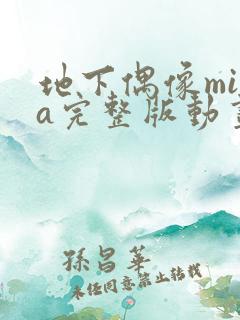 地下偶像mi
a完整版动
孫昌華
未经同意禁止转载